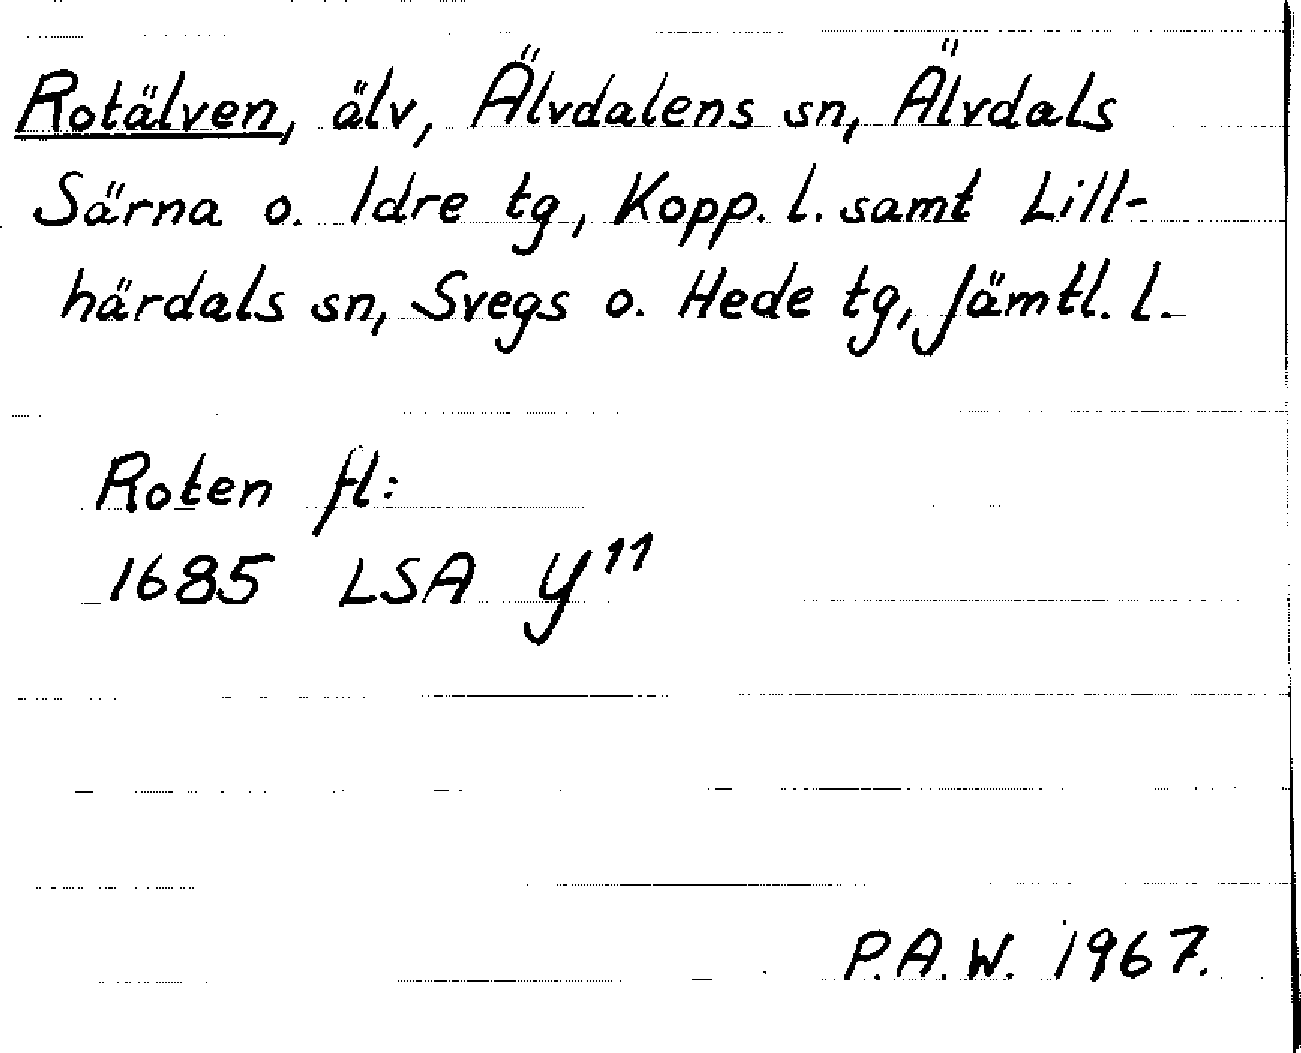 Rotälven, älv, Älvdalens sn, Älvdals
Särna o. Idre tg, Kopp. l. samt Lill-
härdals sn, Svegs o. Hede tg, Jämtl. l.
Roten fl:
1685 LSA y11
P.A.W. 1967.